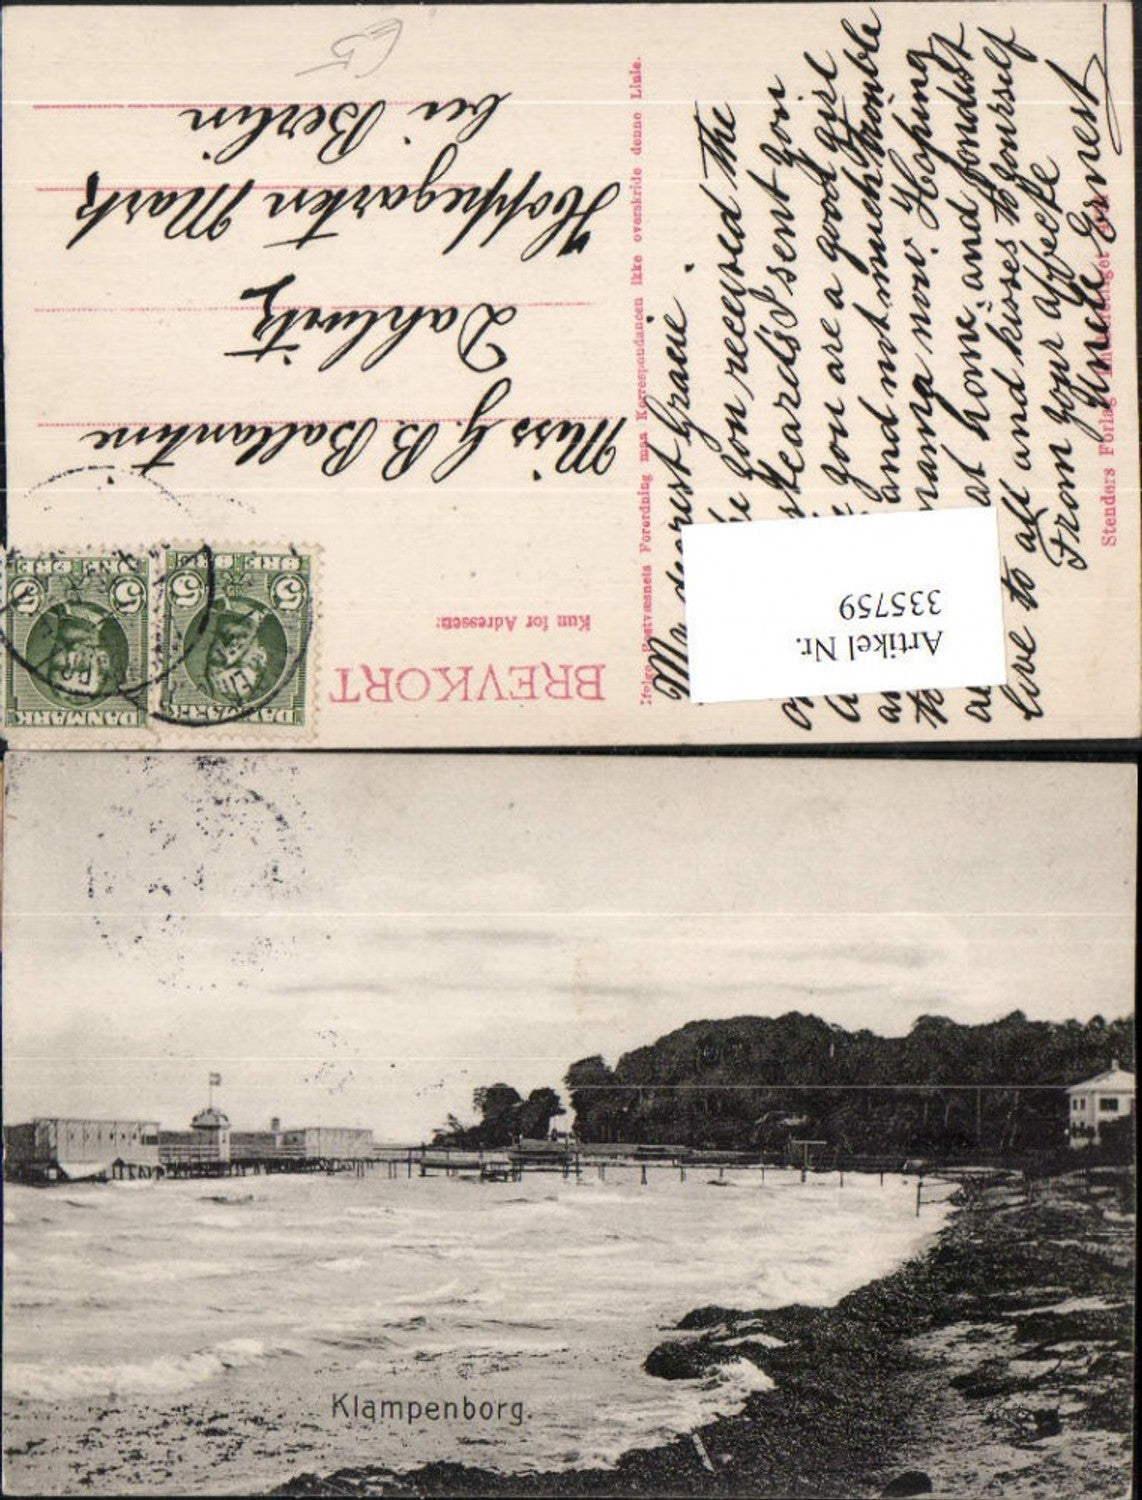 BREVKORT
Kun for Adressen:
DANMARK
5 ØRE 5
DANMARK
5 ØRE 5
Miss G. B. Ballantine
Dahlwitz
Hoppegarten Mark
bei Berlin
Ifølge Postvæsnets Forordning maa Korrespondancen ikke overskride denne Linie.
My dearest Gracie
you received the
I sent you
you are a good girl
and not much trouble
now. Hoping
at home, and fondest
love to all and kisses to yourself
From your affecte
Uncle Ernest
Stenders Forlag
Artikel Nr.
335759
Klampenborg.